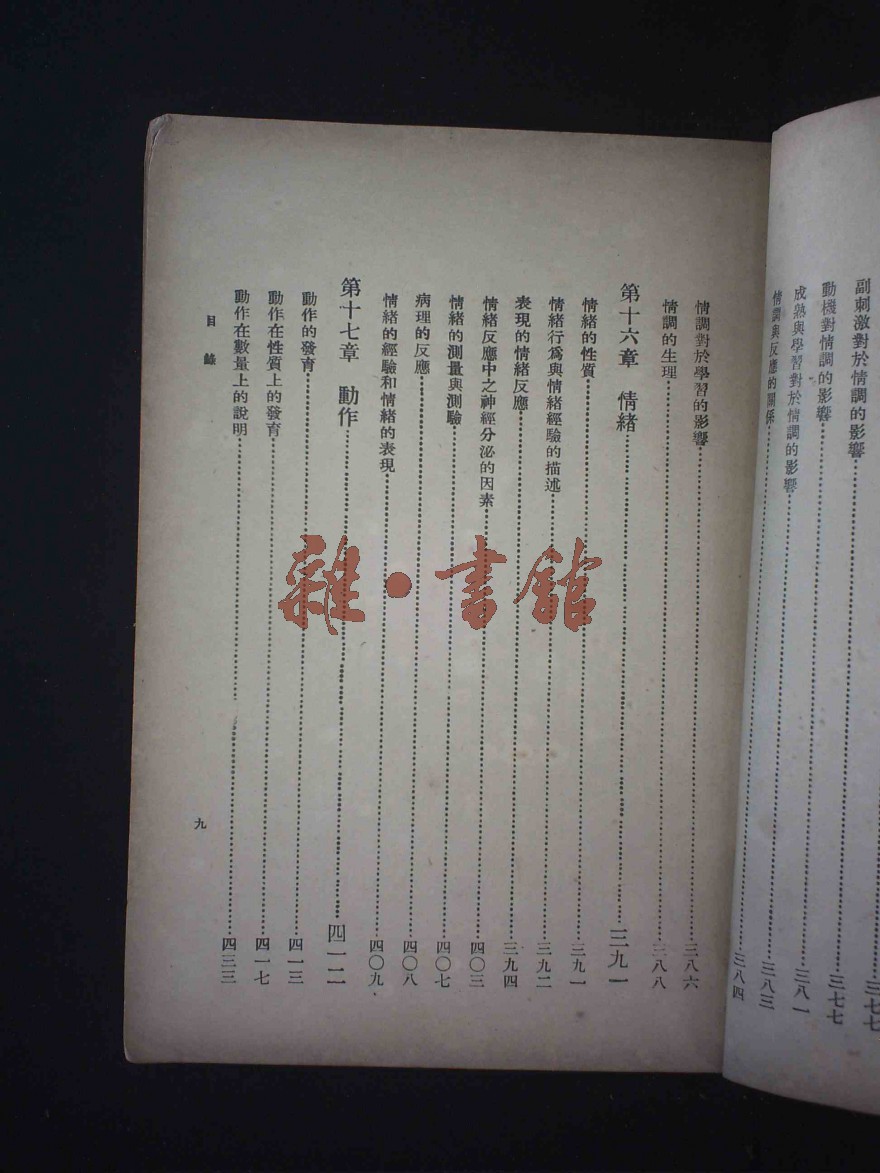 副刺激對於情調的影響 三七七
動機對情調的影響 三七七
成熟與學習對於情調的影響 三八一
情調與反應的關係 三八三
三八四
情調對於學習的影響 三八六
情調的生理 三八八
第十六章 情緒 三九一
情緒的性質 三九一
情緒行爲與情緒經驗的描述 三九二
表現的情緒反應 三九四
情緒反應中之神經分泌的因素 四〇三
情緒的測量與測驗 四〇七
病理的反應 四〇八
情緒的經驗和情緒的表現 四〇九
第十七章 動作 四一二
動作的發育 四一三
動作在性質上的發育 四一七
動作在數量上的說明 四三三
目錄
九
雜·書館